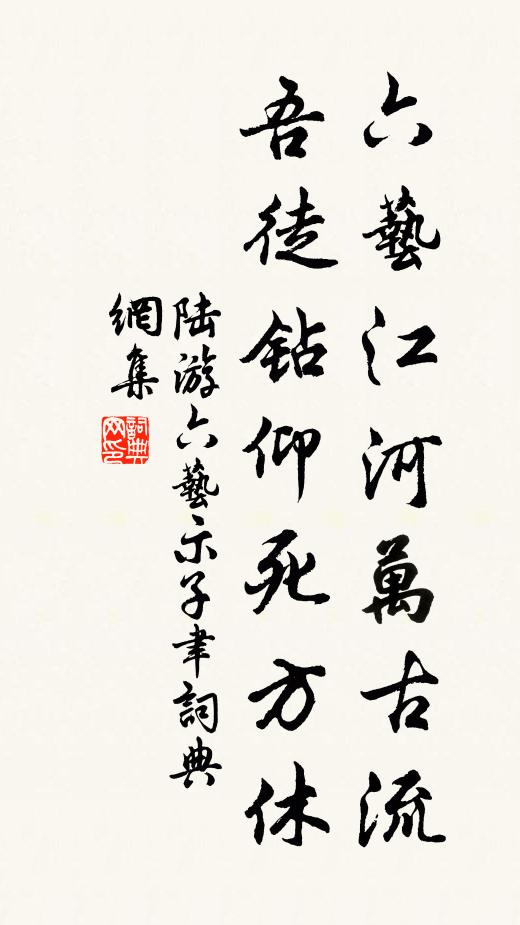 六藝江河萬古流
吾徒鉆仰死方休
陸游六藝示子聿詞典
網集
詞典
网印